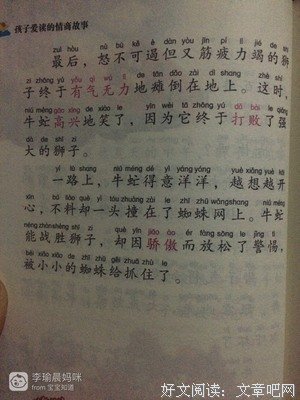 孩子爱读的情商故事
zuì hòu nù bù kě è dàn yòu jīn pí lì jié de shī
最后，怒不可遏但又筋疲力竭的狮
zi zhōng yú yǒu qì wú lì de tān dǎo zài dì shang zhè shí
子终于有气无力地瘫倒在地上。这时，
niú méng gāo xìng de xiào le yīn wèi tā zhōng yú dǎ bài le qiáng
牛虻高兴地笑了，因为它终于打败了强
dà de shī zi
大的狮子。
yí lù shàng niú méng dé yì yáng yáng yuè xiǎng yuè kāi
一路上，牛虻得意洋洋，越想越开
xīn bú liào què yì tóu zhuàng zài le zhī zhū wǎng shang niú méng
心，不料却一头撞在了蜘蛛网上。牛虻
néng zhàn shèng shī zi què yīn jiāo ào ér fàng sōng le jǐng tì
能战胜狮子，却因骄傲而放松了警惕，
bèi xiǎo xiǎo de zhī zhū gěi zhuā zhù le
被小小的蜘蛛给抓住了。
李瑜晨妈咪
from 宝宝知道
好文阅读：文章吧网